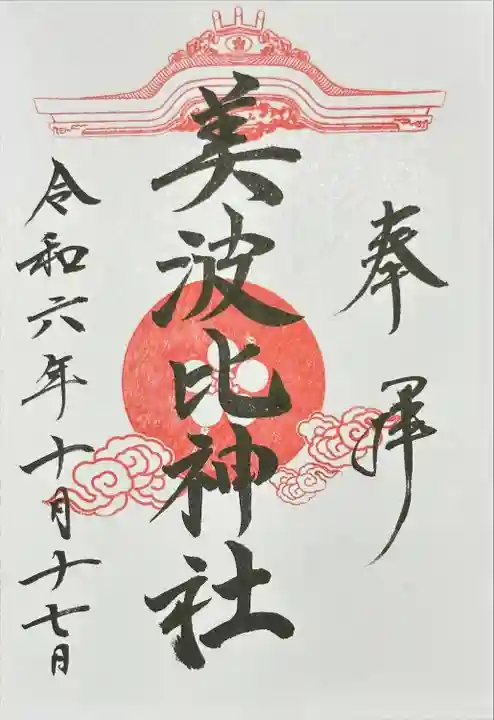 奉拝
美波比神社
令和六年十月十七日